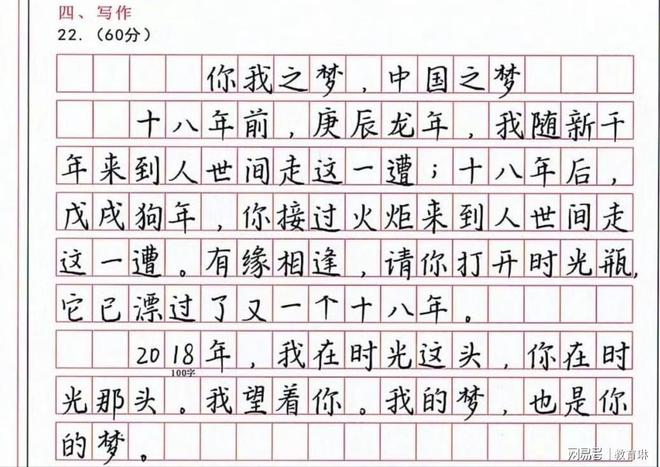 四、写作
22.（60分）
你我之梦，中国之梦
十八年前，庚辰龙年，我随新千
年来到人世间走这一遭；十八年后，
戊戌狗年，你接过火炬来到人世间走
这一遭。有缘相逢，请你打开时光瓶，
它已漂过了又一个十八年。
2018年，我在时光这头，你在时
100字
光那头。我望着你。我的梦，也是你
的梦。
网易号 | 教育琳